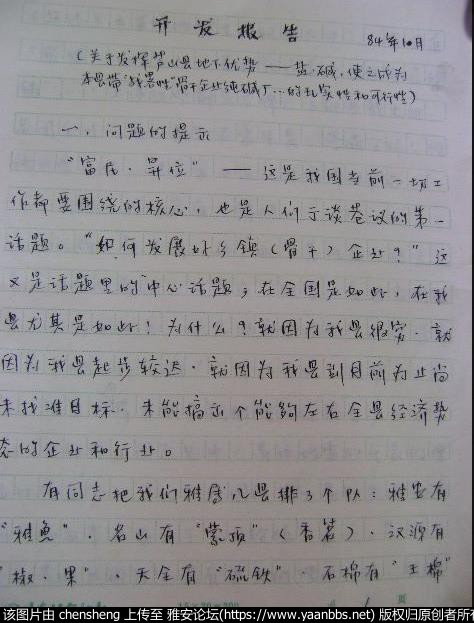 开发报告
84年10月
(关于发挥芦山县地下优势——盐.碱,使之成为
本县带"战略性"骨干企业纯碱厂…的现实性和可行性)
一、问题的提示
"富民·升位"——这是我国当前一切工
作都要围绕的核心,也是人们于谈巷议的第一
话题。"如何发展好乡镇(骨干)企业?"这
又是话题里的中心话题;在全国是如此,在我
县尤其是如此!为什么?就因为我县很穷.就
因为我县起步较迟.就因为我县到目前为止尚
未找准目标.未能搞出个能够左右全县经济势
态的企业和行业。
有同志把我们雅属几县排了个队:雅安有
"雅鱼".名山有"蒙顶"(香茗).汉源有
"椒.果".天全有"硫铁".石棉有"玉棉"
该图片由 chensheng 上传至 雅安论坛(https://www.yaanbbs.net) 版权归原创者所